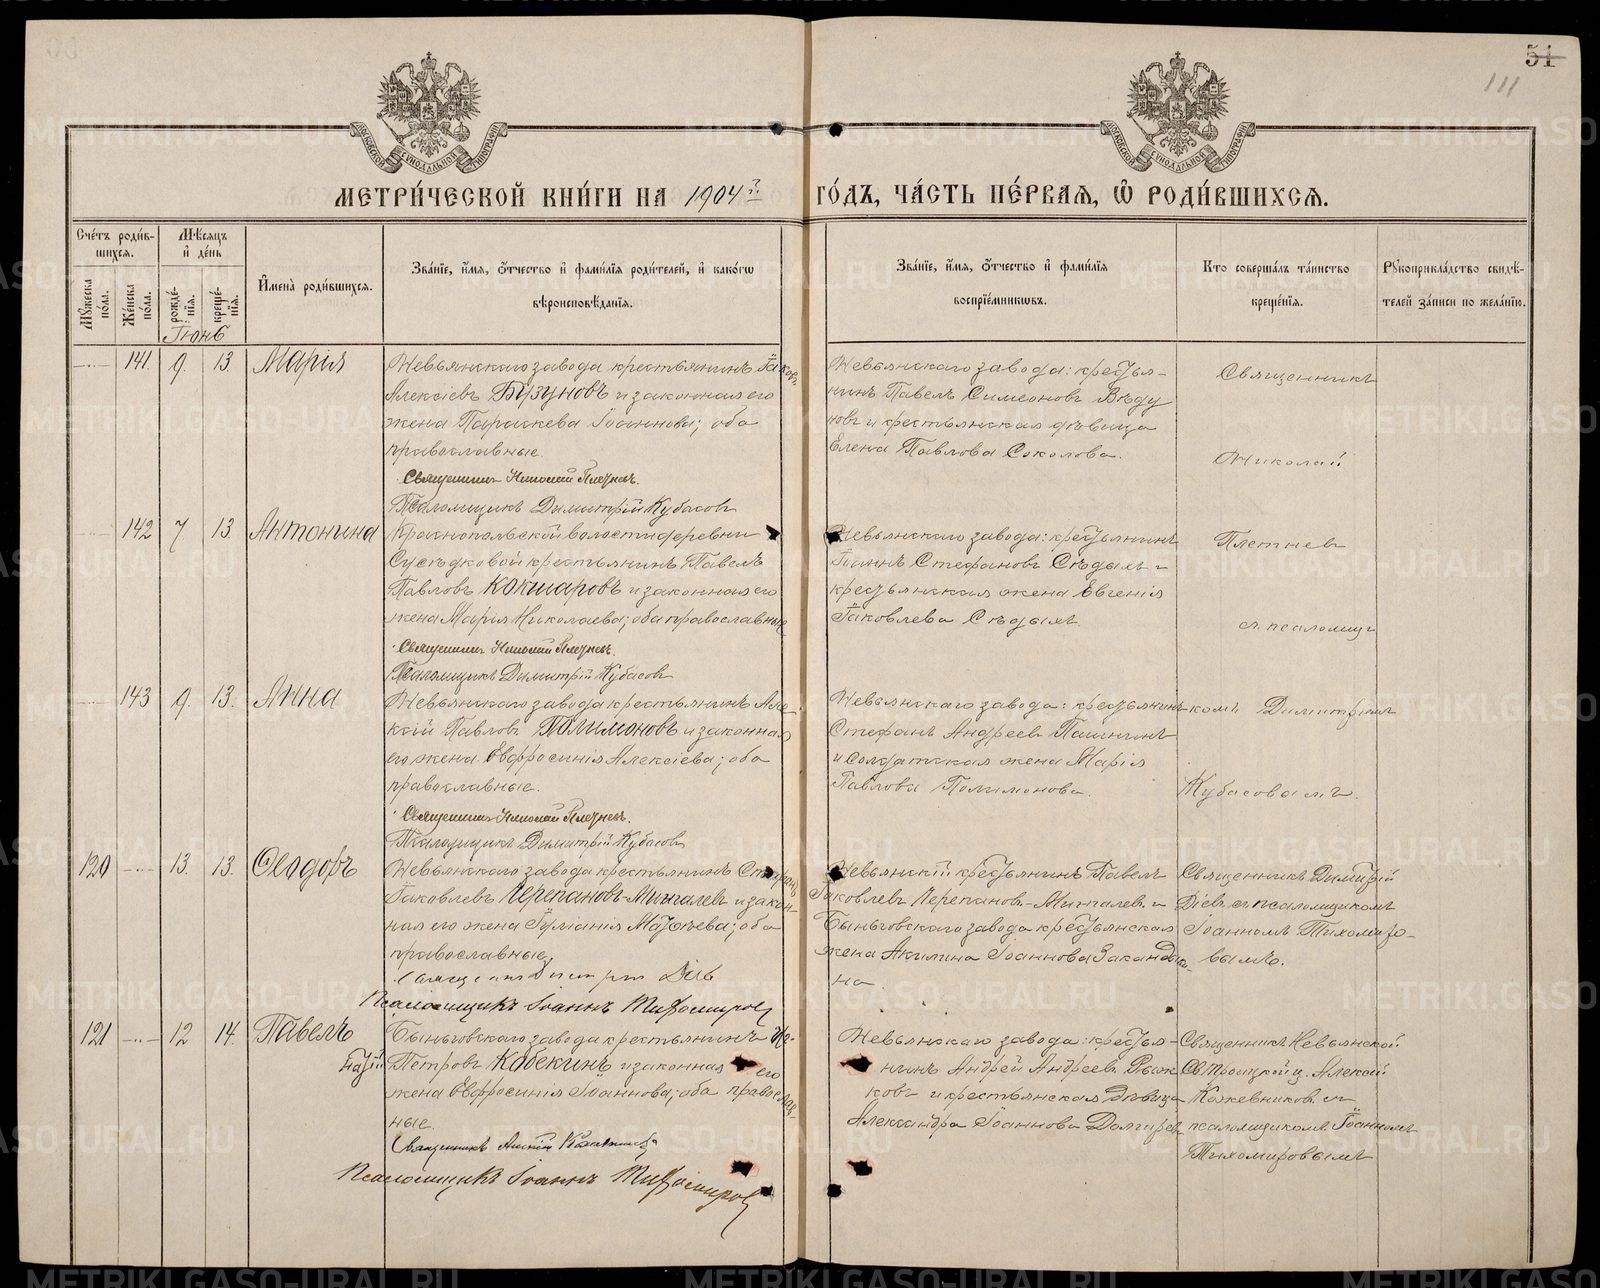 51
111
МЕТРИ́ЧЕСКОЙ КНИ́ГИ НА 1904й ГО́ДЪ, ЧА́СТЬ ПЕ́РВАЯ, Ѡ РОДИ́ВШИХСЯ.
Сче́тъ роди́вшихся.
Мужеска по́ла.
Же́нска по́ла.
Мѣ́сяцъ и де́нь
рожде́нія.
креще́нія.
Имена̀ роди́вшихся.
Зва́ніе, и́мя, о́тчество и фами́лія роди́телей, и како́гѡ
вѣроисповѣ́данія.
Зва́ніе, и́мя, о́тчество и фами́лія
воспріе́мниковъ.
Кто соверша́лъ та́инство
креще́нія.
Рукоприкла́дство свидѣ́-
телей за́писи по жела́нію.
Іюнь
141 9. 13. Марія
Невьянскаго завода крестьянинъ Іаковъ
Алексіевъ Бузуновъ и законная его
жена Параскева Іоаннова; оба
православные.
Священникъ Николай Плетневъ.
Псаломщикъ Димитрій Кубасовъ
Невьянскаго завода: крестья-
нинъ Павелъ Симеоновъ Вѣду
новъ и крестьянская дѣвица
Елена Павлова Соколова.
Священникъ
Николай
142 7 13 Антонина
Краснопольской волости деревни
Сусѣдковой крестьянинъ Павелъ
Павловъ Кокшаровъ и законная его
жена Марія Николаева; оба православные
Священникъ Николай Плетневъ.
Псаломщикъ Димитрій Кубасовъ
Невьянскаго завода: крестьянинъ
Іоаннъ Стефановъ Сѣдыхъ и
крестьянская жена Евгенія
Іаковлева Сѣдыхъ
Плетнев
съ псаломщи
143 9. 13. Анна
Невьянскаго завода крестьянинъ Але-
ксій Павловъ Полимоновъ и законная
его жена Евфросинія Алексіева; оба
православные.
Священникъ Николай Плетневъ.
Псаломщикъ Димитрій Кубасовъ
Невьянскаго завода: крестьянинъ
Стефанъ Андреевъ Пашнинъ
и солдатская жена Марія
Павлова Полимонова.
комъ Димитріемъ
Кубасовымъ.
120 13. 13. Ѳеодоръ
Невьянскаго завода крестьянинъ Стефанъ
Іаковлевъ Черепановъ-Мингалевъ и закон-
ная его жена Іуліанія Матѳеева; оба
православные,
Священникъ Димитрій Діев
Псаломщикъ Іоаннъ Тихомировъ
Невьянскій крестьянинъ Павелъ
Іаковлевъ Черепановъ-Мингалевъ и
Быньговскаго завода крестьянская
жена Акилина Іоаннова
на.
Священникъ Димитрій
Діевъ съ псаломщикомъ
Іоанномъ Тихомиро-
вымъ.
121 12 14. Павелъ
Быньговскаго завода крестьянинъ Иг-
натій Петровъ Кобекинъ и законная его
жена Евфросинія Іоаннова; оба православ-
ные.
Священникъ Алексій Кожевников
Псаломщикъ Іоаннъ Тихомировъ
Невьянскаго завода: крестья-
нинъ Андрей Андреевъ Рыж
ковъ и крестьянская дѣвица
Александра Іоаннова
Священникъ Невьянской
Св. Троицкой ц. Алексій
Кожевниковъ съ
псаломщикомъ Іоанномъ
Тихомировымъ